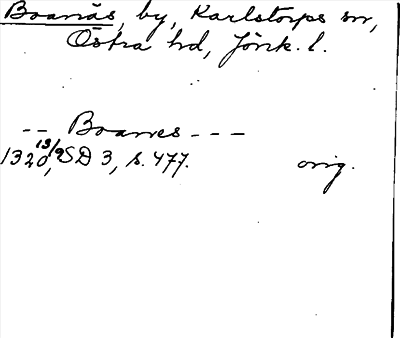 Boanäs, by, Karlstorps sn,
Östra hd, Jönk. l.
-- Boanes ---
1320 13/9, SD 3, s. 477. orig.